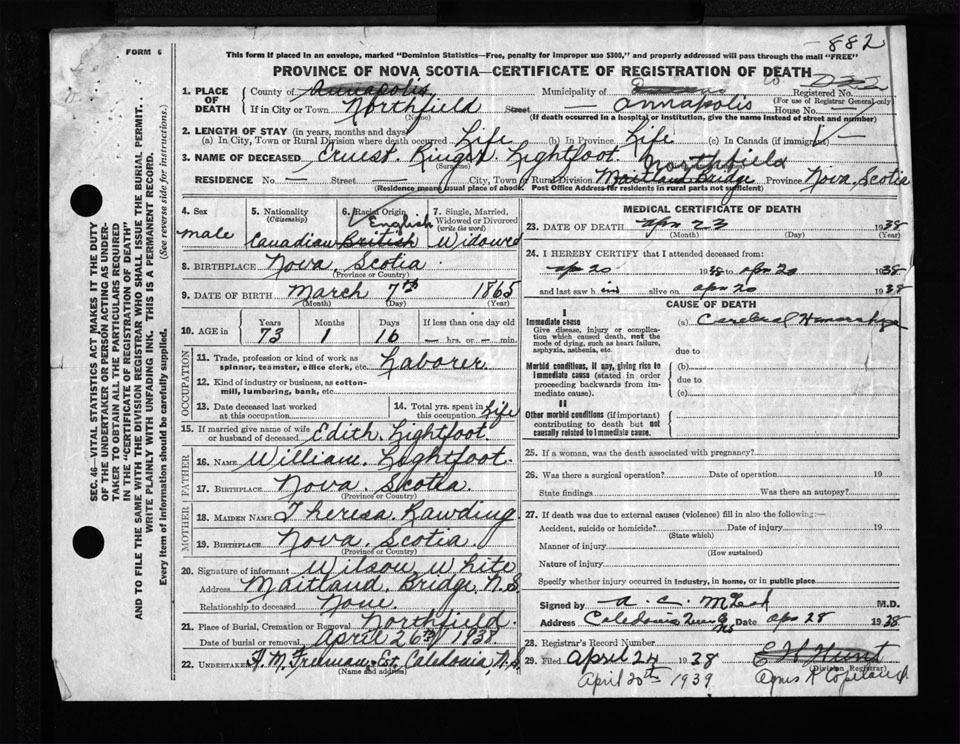 882
FORM 6
This form if placed in an envelope, marked "Dominion Statistics—Free, penalty for improper use $300," and properly addressed will pass through the mail "FREE"
PROVINCE OF NOVA SCOTIA—CERTIFICATE OF REGISTRATION OF DEATH
1. PLACE OF DEATH
County of Annapolis Municipality of Annapolis Registered No.
(For use of Registrar General only)
If in City or Town Northfield Street — House No. —
(Name) (If death occurred in a hospital or institution, give the name instead of street and number)
2. LENGTH OF STAY (in years, months and days)
(a) In City, Town or Rural Division where death occurred Life (b) In Province Life (c) In Canada (if immigrant) —
3. NAME OF DECEASED Ernest Lightfoot
(Surname)
Northfield
RESIDENCE No. — Street — City, Town or Rural Division Maitland Bridge Province Nova Scotia
(Residence means usual place of abode. Post Office Address for residents in rural parts not sufficient)
4. Sex Male
5. Nationality (Citizenship) Canadian
6. Racial Origin English British
7. Single, Married, Widowed or Divorced (write the word) Widowed
8. BIRTHPLACE Nova Scotia
(Province or Country)
9. DATE OF BIRTH March 7th 1865
(Month) (Day) (Year)
10. AGE in Years Months Days If less than one day old
73 1 16 — hrs. or — min.
OCCUPATION
11. Trade, profession or kind of work as spinner, teamster, office clerk, etc. Laborer
12. Kind of industry or business, as cotton-mill, lumbering, bank, etc.
13. Date deceased last worked at this occupation
14. Total yrs. spent in this occupation Life
15. If married give name of wife or husband of deceased Edith Lightfoot
FATHER
16. NAME William Lightfoot
17. BIRTHPLACE Nova Scotia
(Province or Country)
MOTHER
18. MAIDEN NAME Theresa Rawding
19. BIRTHPLACE Nova Scotia
(Province or Country)
20. Signature of informant Wilson White
Address Maitland Bridge, N.S.
Relationship to deceased None
21. Place of Burial, Cremation or Removal Northfield
Date of burial or removal April 26th 1938
22. UNDERTAKER F. M. Freeman Est. Caledonia, N.S.
(Name and address)
MEDICAL CERTIFICATE OF DEATH
23. DATE OF DEATH Apr 23 1938
(Month) (Day) (Year)
24. I HEREBY CERTIFY that I attended deceased from:
Apr 20 1938 to Apr 20 1938
and last saw him alive on Apr 20 1938
CAUSE OF DEATH
I
Immediate cause
Give disease, injury or complication which caused death, not the mode of dying, such as heart failure, asphyxia, asthenia, etc.
(a) Cerebral
due to
Morbid conditions, if any, giving rise to immediate cause (stated in order proceeding backwards from immediate cause).
(b)
due to
(c)
II
Other morbid conditions (if important) contributing to death but not causally related to immediate cause.
25. If a woman, was the death associated with pregnancy?
26. Was there a surgical operation? Date of operation 19
State findings Was there an autopsy?
27. If death was due to external causes (violence) fill in also the following:—
Accident, suicide or homicide? Date of injury 19
(State which)
Manner of injury
(How sustained)
Nature of injury
Specify whether injury occurred in industry, in home, or in public place
Signed by A. C. M.D.
Address Caledonia Queens NS Date Apr 28 1938
28. Registrar's Record Number
29. Filed April 24 1938 E H Hunt
(Division Registrar)
April 20th 1939 Agnes R Copeland
SEC. 46—VITAL STATISTICS ACT MAKES IT THE DUTY
OF THE UNDERTAKER OR PERSON ACTING AS UNDERTAKER TO OBTAIN ALL THE PARTICULARS REQUIRED
IN THE "CERTIFICATE OF REGISTRATION OF DEATH"
AND TO FILE THE SAME WITH THE DIVISION REGISTRAR WHO SHALL ISSUE THE BURIAL PERMIT.
WRITE PLAINLY WITH UNFADING INK. THIS IS A PERMANENT RECORD.
Every item of information should be carefully supplied. (See reverse side for instructions.)